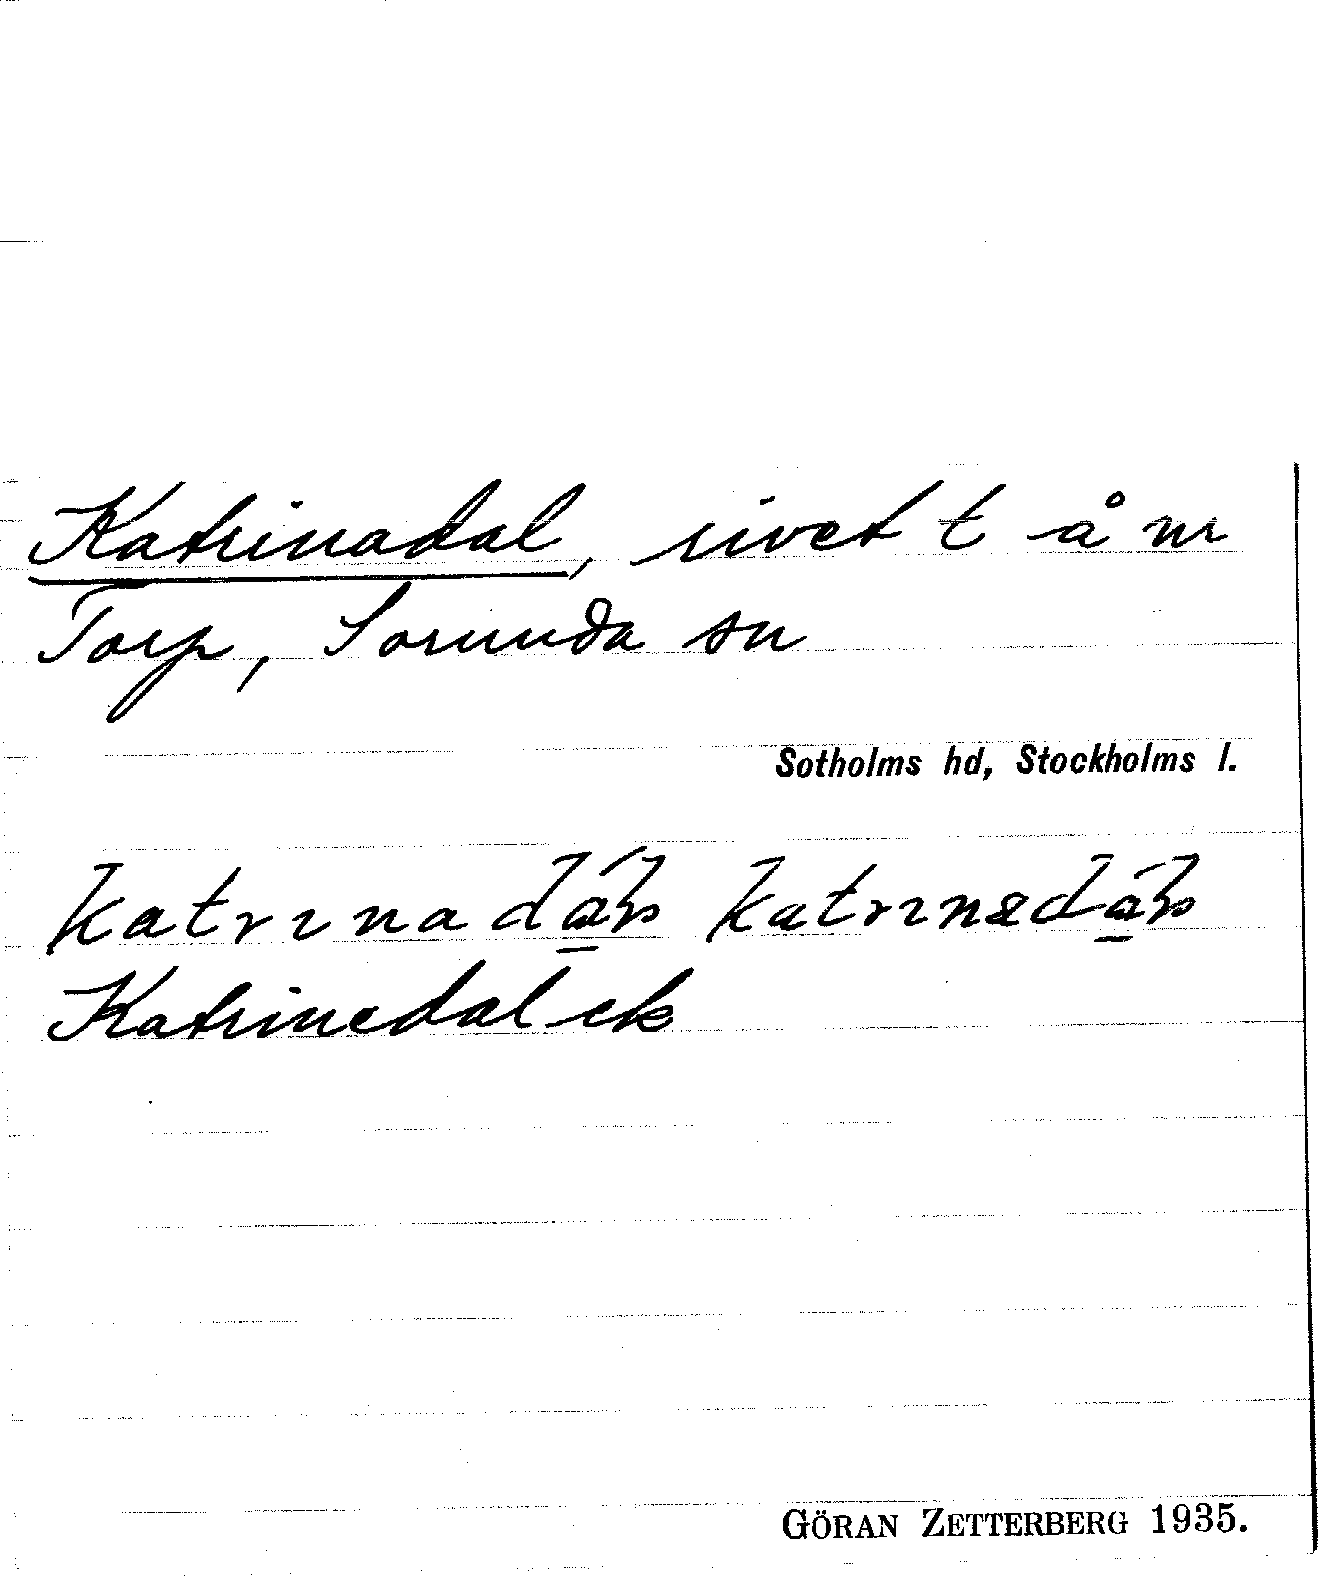 Katrinadal, rivet t å nr
Torp, Sorunda sn
Sotholms hd, Stockholms l.
katrınadá̱ls katrınədá̱ls
Katrinedal ek
GÖRAN ZETTERBERG 1935.